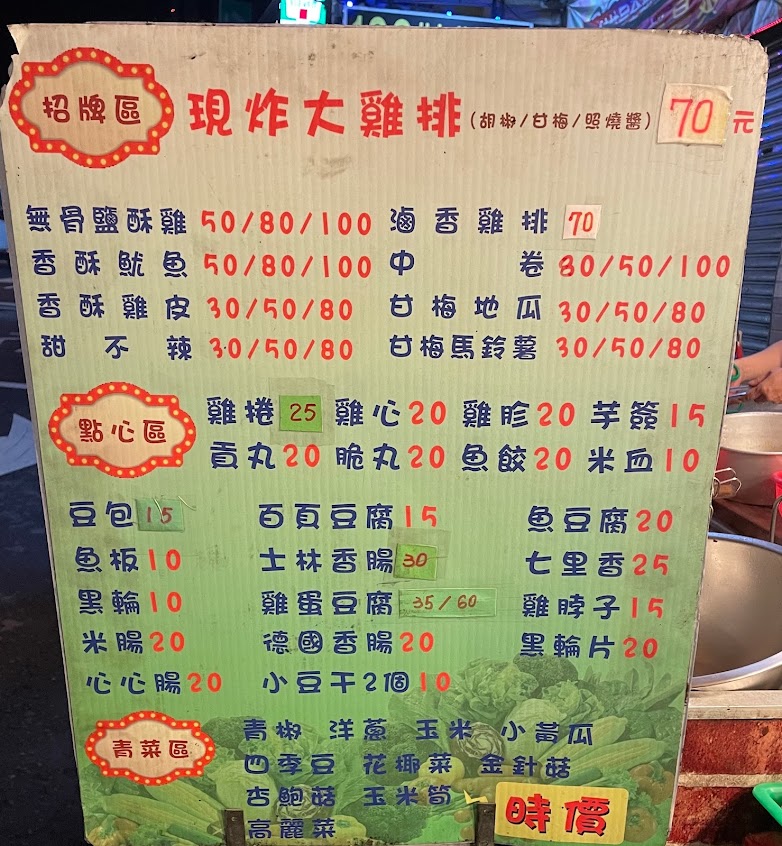 招牌區 現炸大雞排(胡椒/甘梅/照燒醬) 70元
無骨鹽酥雞 50/80/100 滷香雞排 70
香酥魷魚 50/80/100 中卷 30/50/100
香酥雞皮 30/50/80 甘梅地瓜 30/50/80
甜不辣 30/50/80 甘梅馬鈴薯 30/50/80
點心區
雞捲 25 雞心20 雞胗20 芋簽15
貢丸20 脆丸20 魚餃20 米血10
豆包15 百頁豆腐15 魚豆腐20
魚板10 士林香腸30 七里香25
黑輪10 雞蛋豆腐 35/60 雞脖子15
米腸20 德國香腸20 黑輪片20
心心腸20 小豆干2個10
青菜區
青椒 洋蔥 玉米 小黃瓜
四季豆 花椰菜 金針菇
杏鮑菇 玉米筍
高麗菜
時價